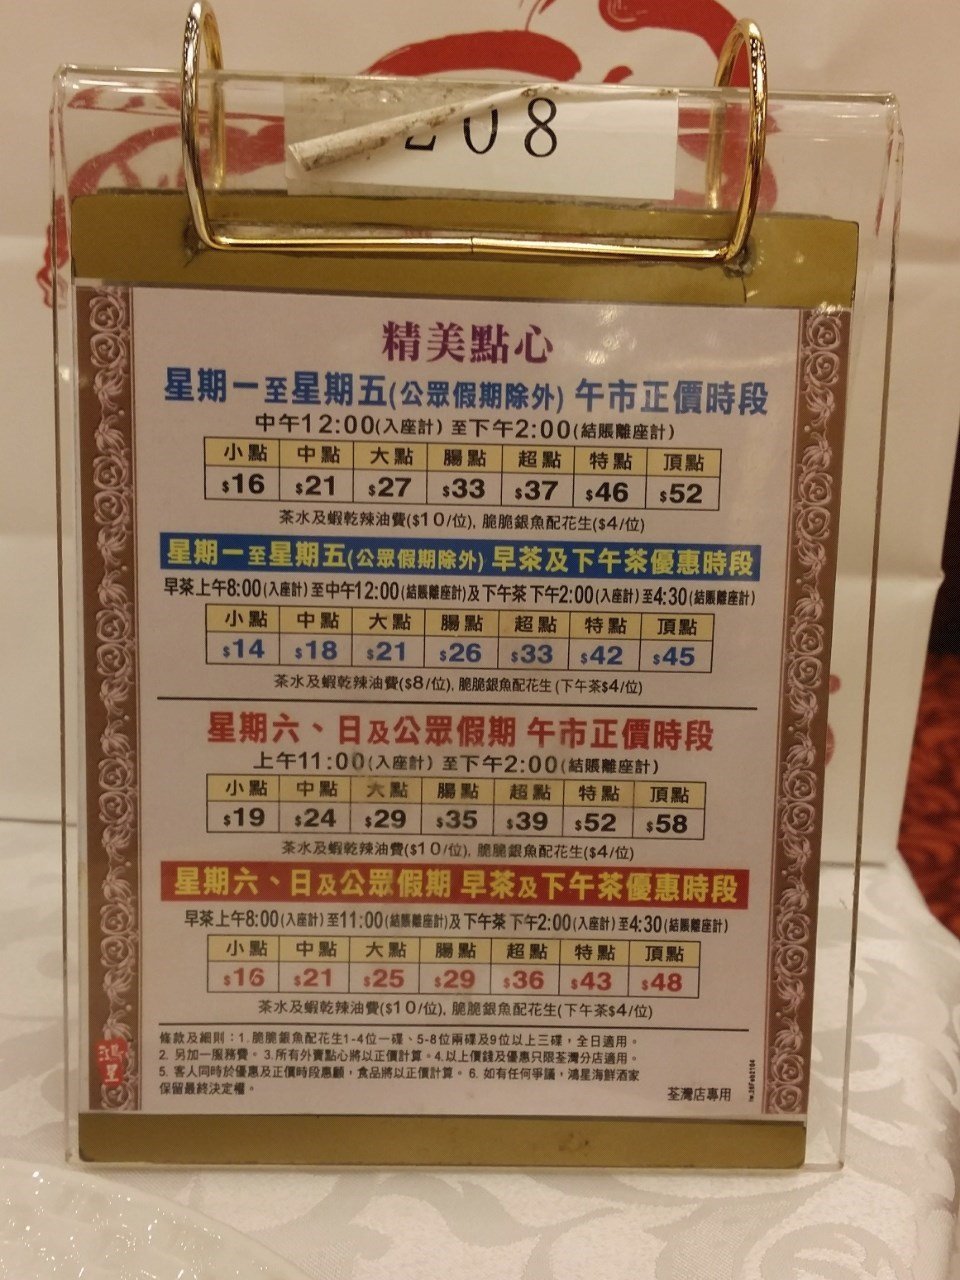 208
精美點心
星期一至星期五(公眾假期除外) 午市正價時段
中午12:00(入座計) 至下午2:00(結賬離座計)
小點 中點 大點 腸點 超點 特點 頂點
$16 $21 $27 $33 $37 $46 $52
茶水及蝦乾辣油費($10/位), 脆脆銀魚配花生($4/位)
星期一至星期五(公眾假期除外) 早茶及下午茶優惠時段
早茶上午8:00(入座計)至中午12:00(結賬離座計)及下午茶 下午2:00(入座計)至4:30(結賬離座計)
小點 中點 大點 腸點 超點 特點 頂點
$14 $18 $21 $26 $33 $42 $45
茶水及蝦乾辣油費($8/位), 脆脆銀魚配花生(下午茶$4/位)
星期六、日及公眾假期 午市正價時段
上午11:00(入座計) 至下午2:00(結賬離座計)
小點 中點 大點 腸點 超點 特點 頂點
$19 $24 $29 $35 $39 $52 $58
茶水及蝦乾辣油費($10/位), 脆脆銀魚配花生($4/位)
星期六、日及公眾假期 早茶及下午茶優惠時段
早茶上午8:00(入座計)至11:00(結賬離座計)及下午茶 下午2:00(入座計)至4:30(結賬離座計)
小點 中點 大點 腸點 超點 特點 頂點
$16 $21 $25 $29 $36 $43 $48
茶水及蝦乾辣油費($10/位), 脆脆銀魚配花生(下午茶$4/位)
條款及細則：1. 脆脆銀魚配花生1-4位一碟、5-8位兩碟及9位以上三碟，全日適用。
2. 另加一服務費。3.所有外賣點心將以正價計算。4.以上價錢及優惠只限荃灣分店適用。
5. 客人同時於優惠及正價時段惠顧，食品將以正價計算。6. 如有任何爭議，鴻星海鮮酒家
保留最終決定權。
荃灣店專用
鴻星